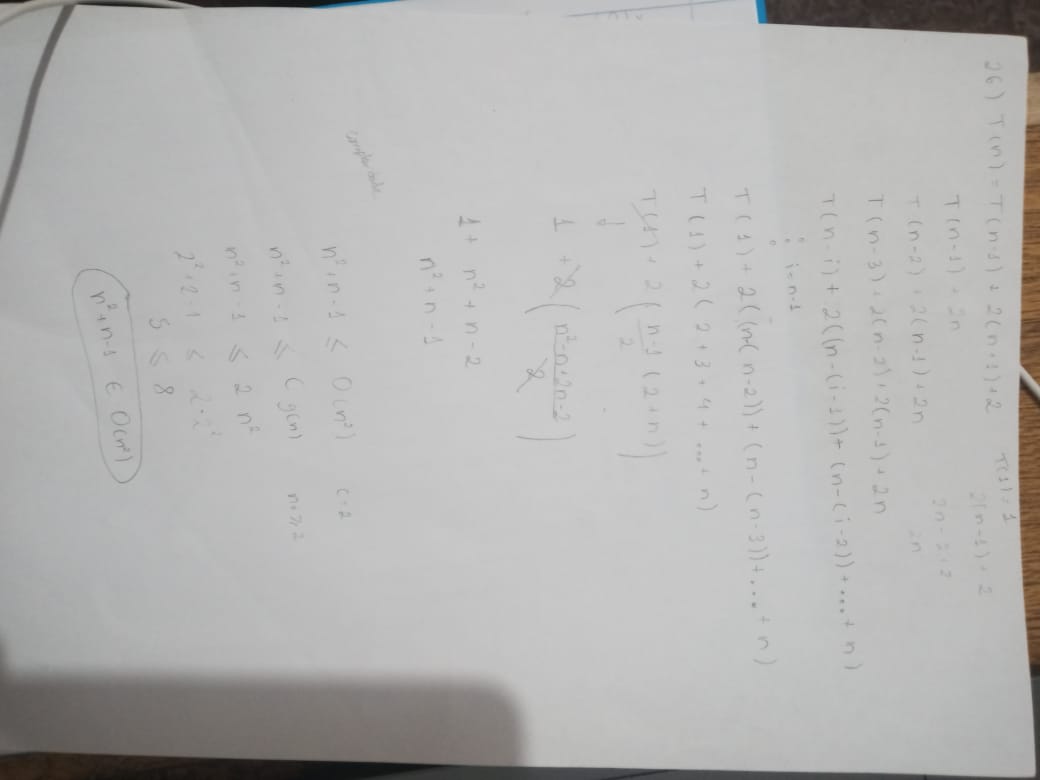 26) T(n) = T(n-1) + 2(n+1)+2 T(1) = 1
2(n-1) + 2
T(n-1) + 2n
2n-2+2
T(n-2) + 2(n-1)+2n
2n
T(n-3)+2(n-2)+2(n-1)+2n
T(n-i)+ 2((n-(i-1))+ (n-(i-2))+...+ n)
i = n-1
T(1) + 2((n-(n-2))+(n-(n-3))+...+ n)
T(1)+2(2+3+4+...+n)
T(1)+2(n-1/2 (2+n))
1 + 2(n²-n+2n-2/2)
1+ n²+n-2
n²+n-1
n²+n-1 ≤ O(n²) C=2
n²+n-1 ≤ C g(n) n≥2
n²+n-1 ≤ 2 n²
2²+2-1 ≤ 2·2²
5 ≤ 8
n²+n-1 ∈ O(n²)